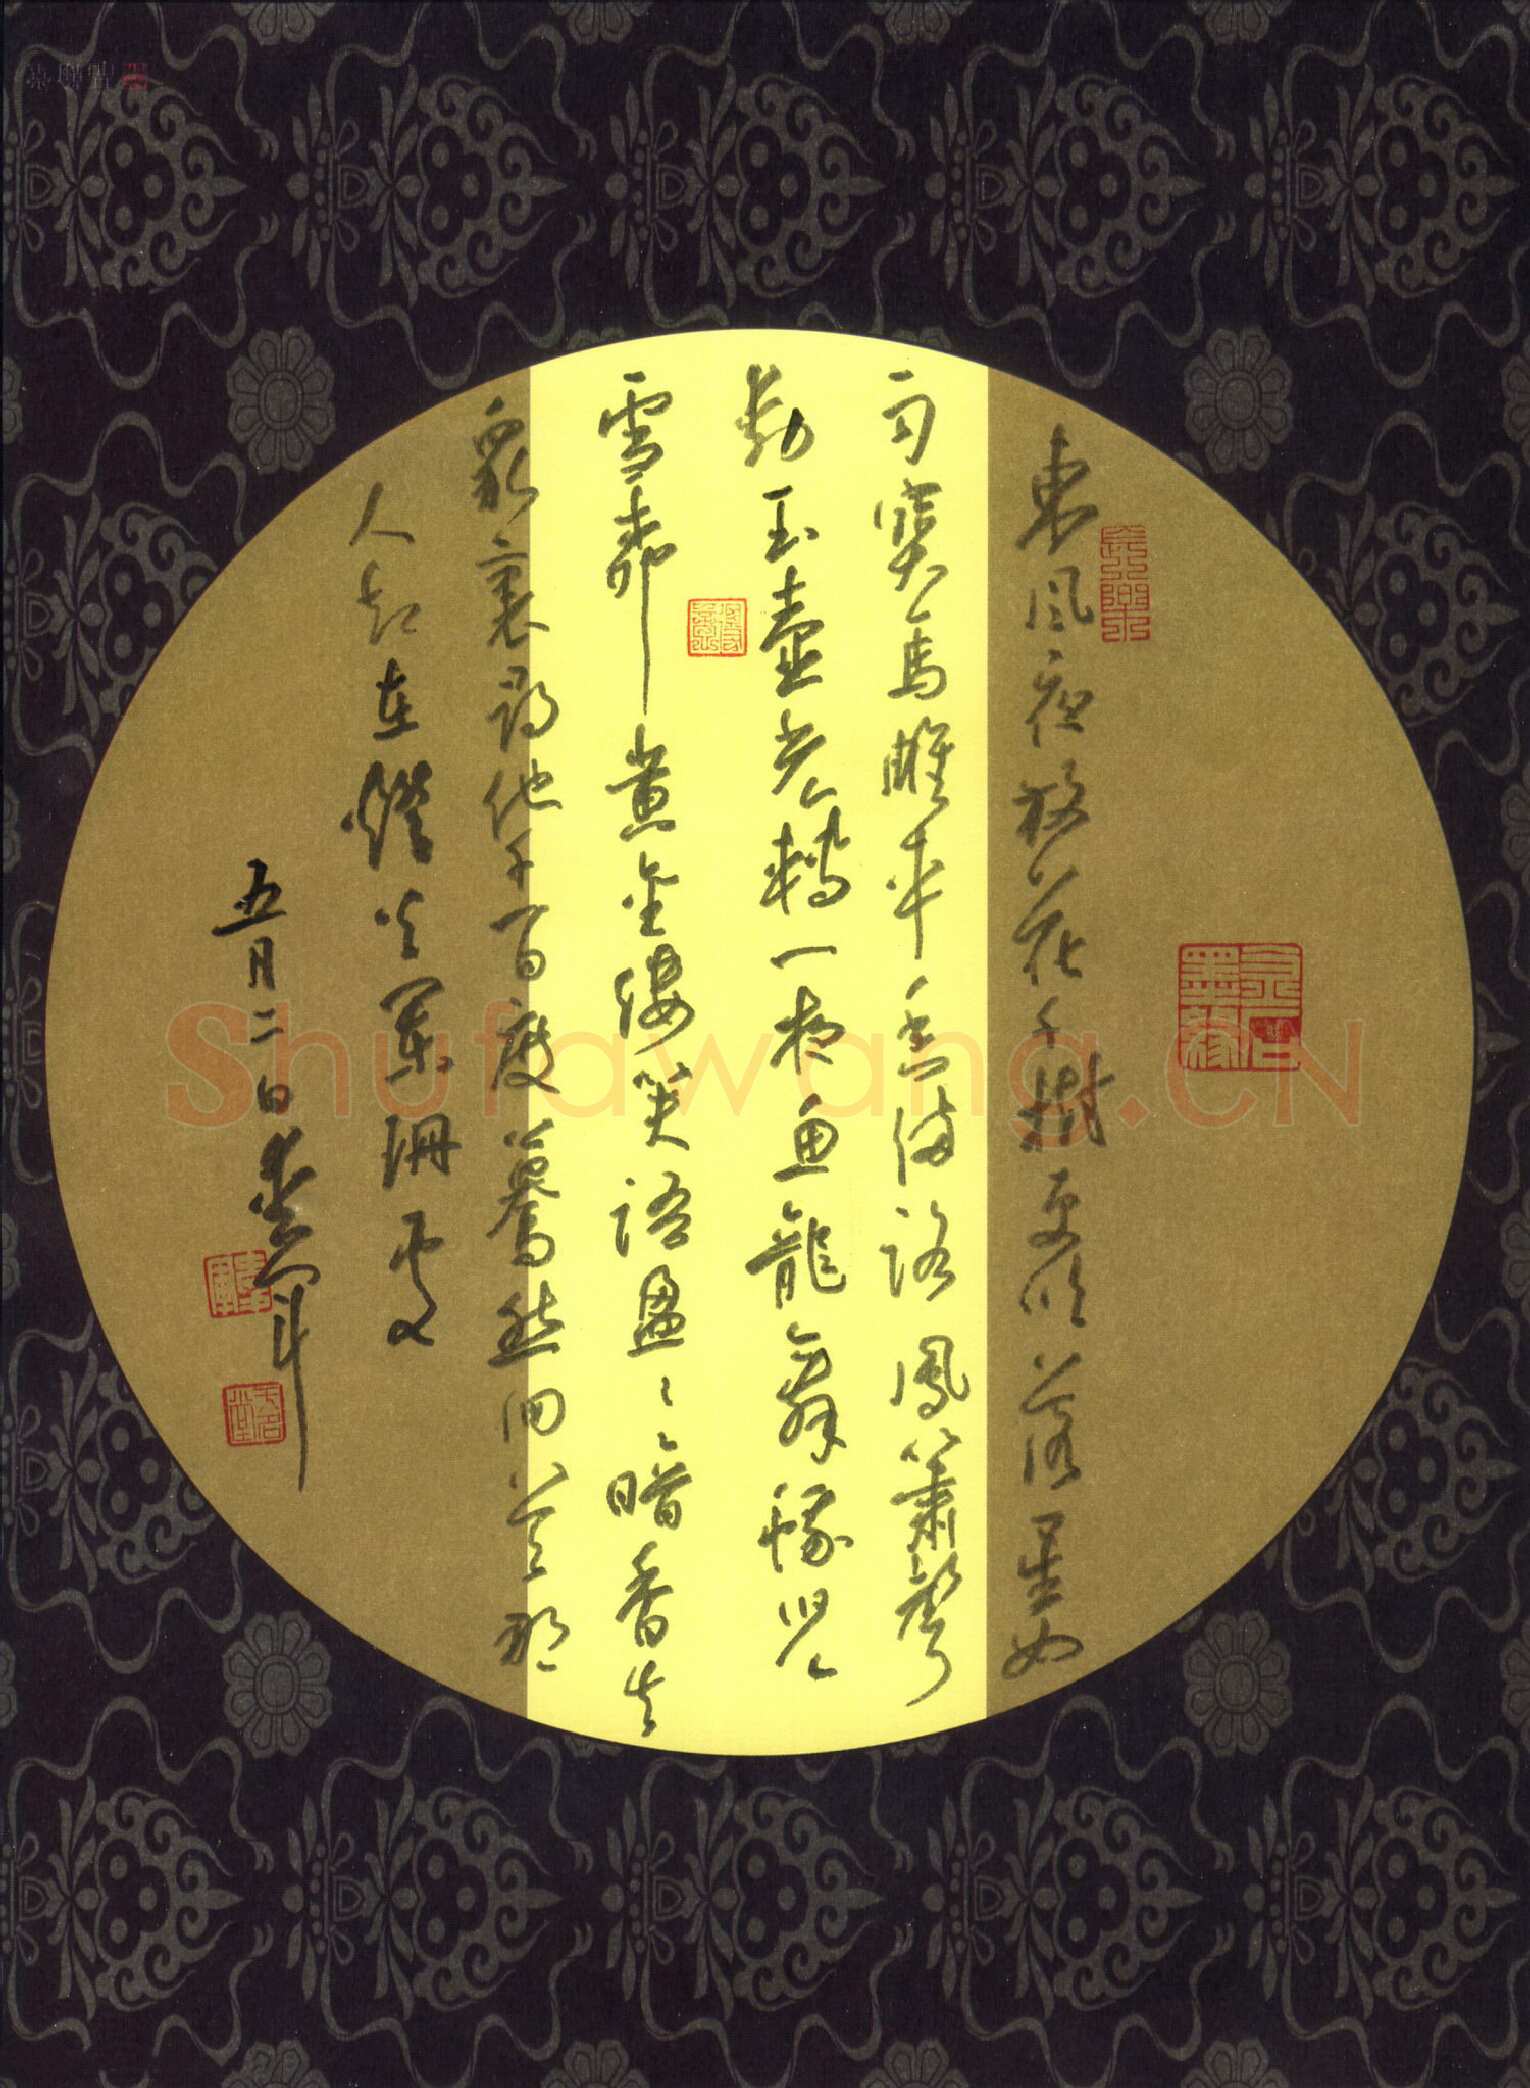 東風夜放花千樹更吹落星如
雨寶馬雕車香满路鳳簫聲
動玉壺光轉一夜魚龍舞蛾兒
雪柳黃金縷笑語盈〻暗香去
衆裏尋他千百度驀然回首那
人却在燈火闌珊處
五月二日
長樂
Shufawang.CN